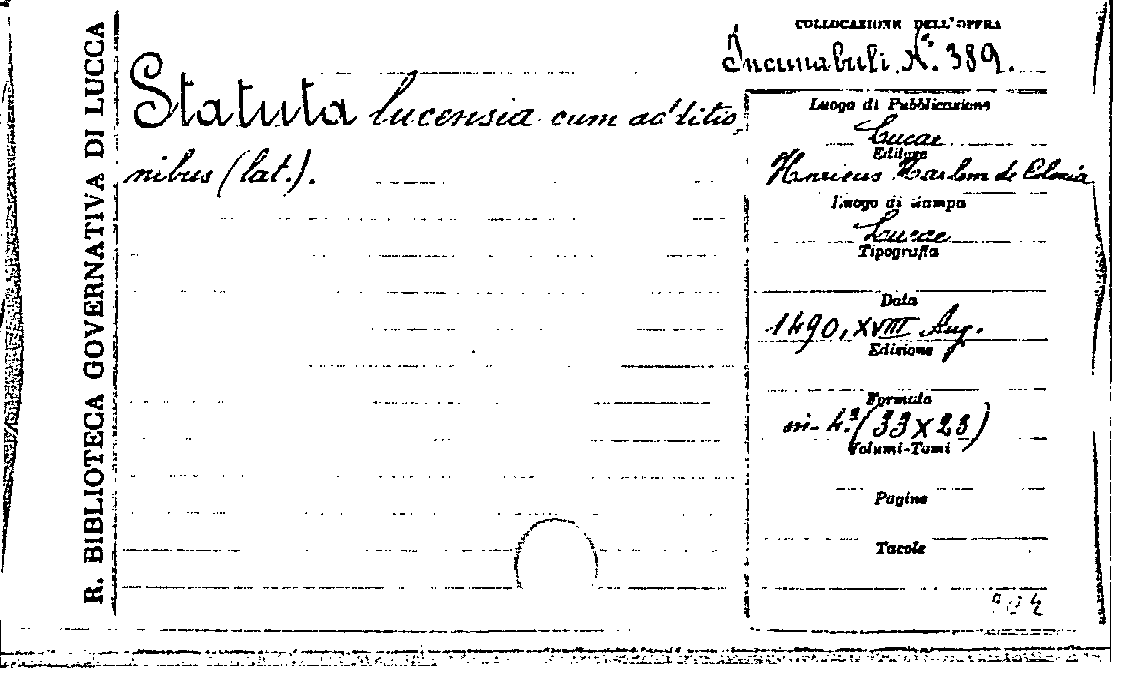 R. BIBLIOTECA GOVERNATIVA DI LUCCA
COLLOCAZIONE DELL'OPERA
Incunabuli N.º 389.
Statuta lucensia cum additio-
nibus (lat.).
Luogo di Pubblicazione
Lucae
Editore
Henricus Harlem de Colonia
Luogo di stampa
Lucae
Tipografia
Data
1490, XVIII Aug.
Edizione
Formato
in-4.º (33x23)
Volumi-Tomi
Pagine
Tavole